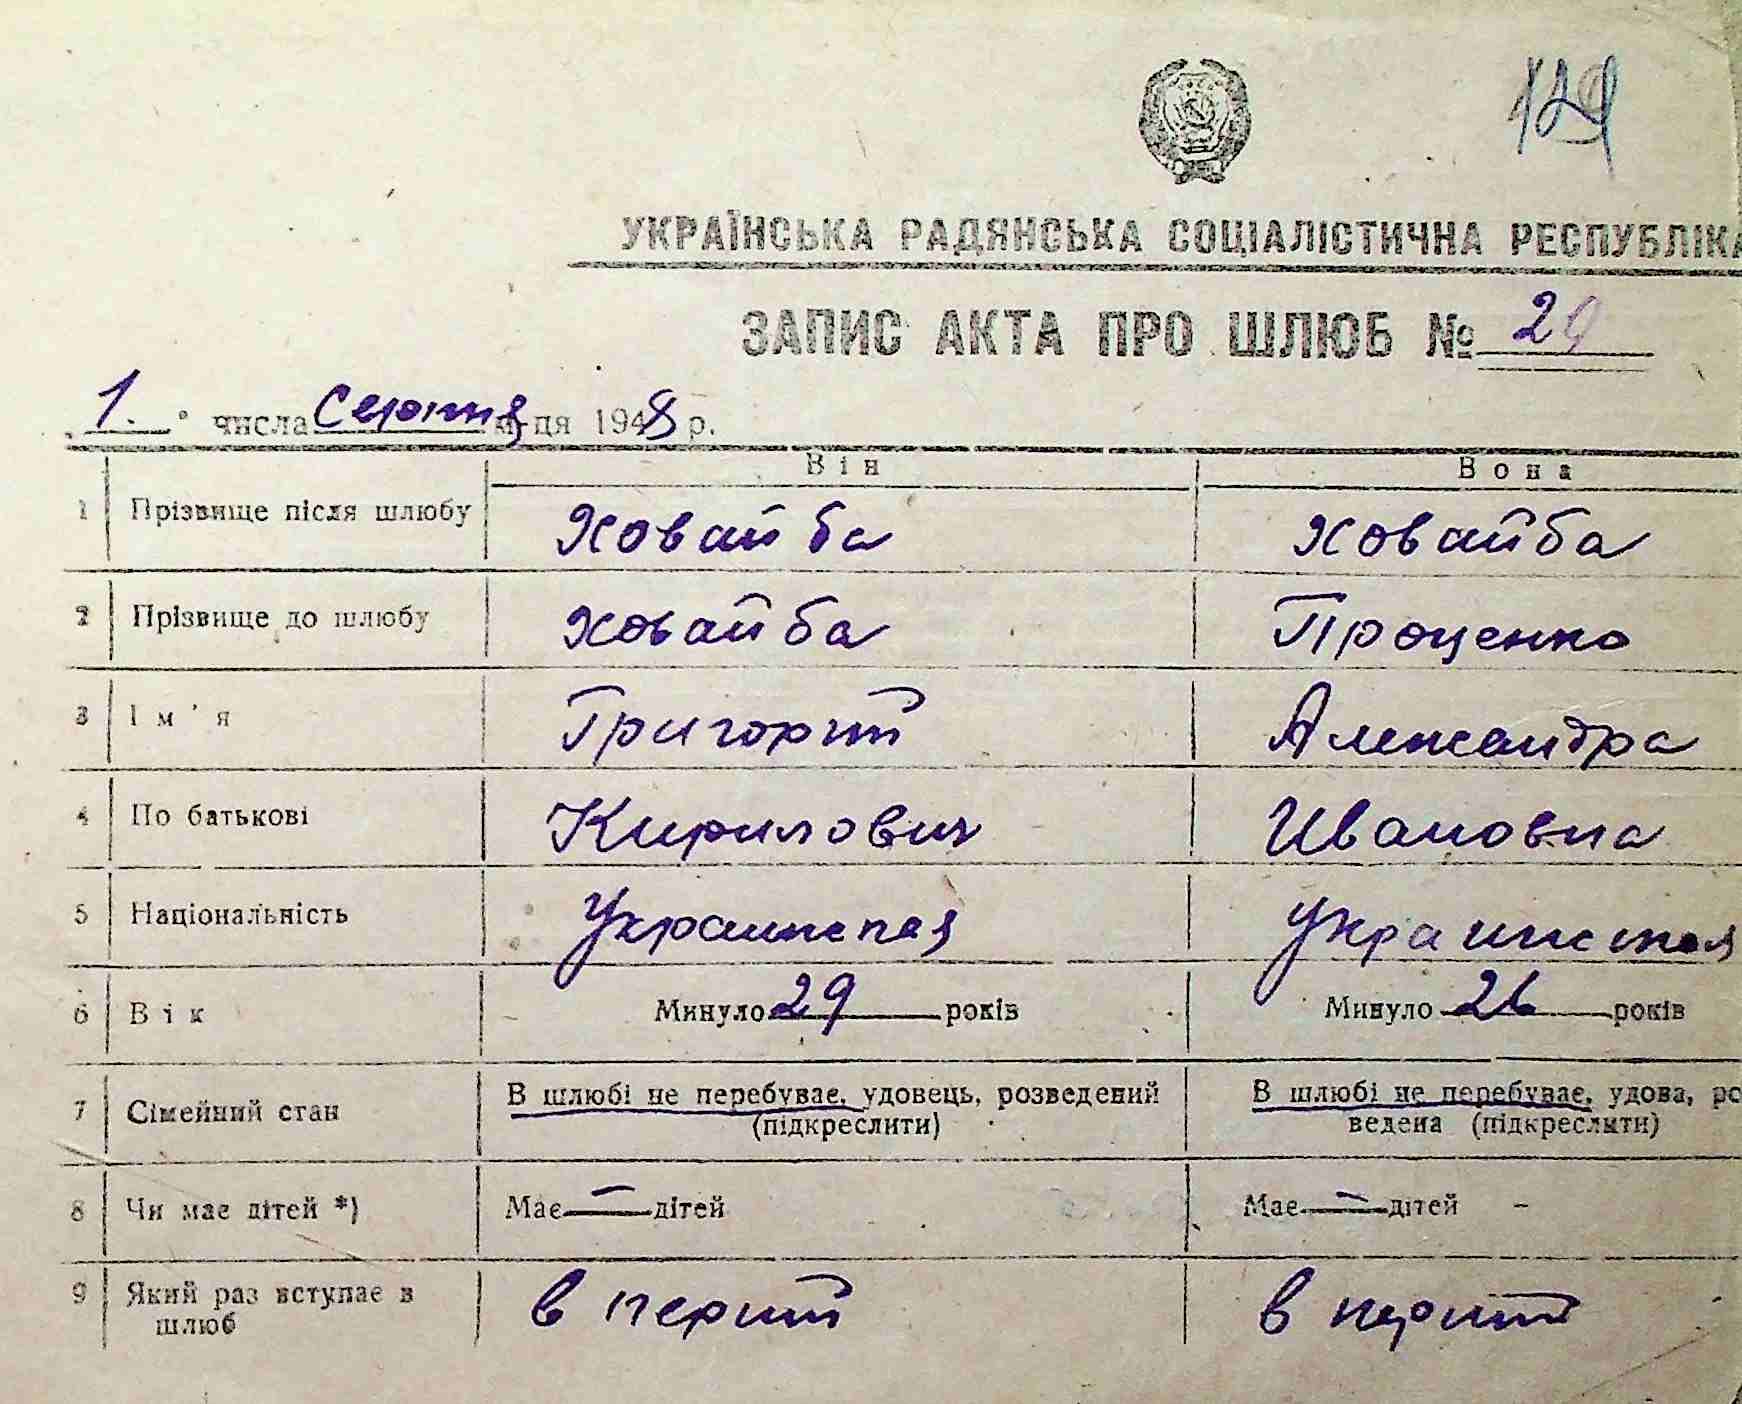 129
УКРАЇНСЬКА РАДЯНСЬКА СОЦІАЛІСТИЧНА РЕСПУБЛІКА
ЗАПИС АКТА ПРО ШЛЮБ № 29
1. числа Серпня м-ця 1948 р.
Він Вона
1 Прізвище після шлюбу Ховайба Ховайба
2 Прізвище до шлюбу Ховайба Проценко
3 Ім'я Григорій Александра
4 По батькові Кирилович Ивановна
5 Національність Украинская Украинская
6 Вік Минуло 29 років Минуло 26 років
7 Сімейний стан В шлюбі не перебуває, удовець, розведений В шлюбі не перебуває, удова, ро
(підкреслити) ведена (підкреслити)
8 Чи має дітей *) Має — дітей Має — дітей
9 Який раз вступає в в перший в перший
шлюб